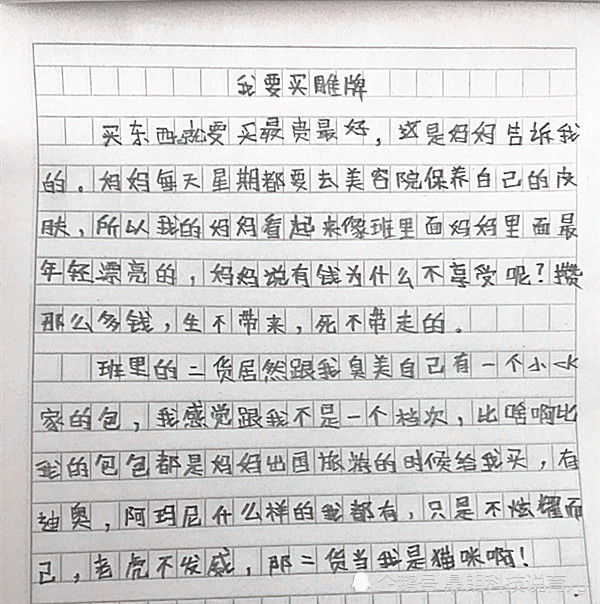 我要买雕牌
买东西就要买最贵最好，这是妈妈告诉我
的。妈妈每天星期都要去美容院保养自己的皮
肤，所以我的妈妈看起来像班里面妈妈里面最
年轻漂亮的，妈妈说有钱为什么不享受呢？攒
那么多钱，生不带来，死不带走的。
班里的二货居然跟我臭美自己有一个小ck
家的包，我感觉跟我不是一个档次，比啥啊比
我的包包都是妈妈出国旅游的时候给我买，有
迪奥，阿玛尼什么样的我都有，只是不炫耀而
己，老虎不发威，那二货当我是猫咪啊！
企鹅号